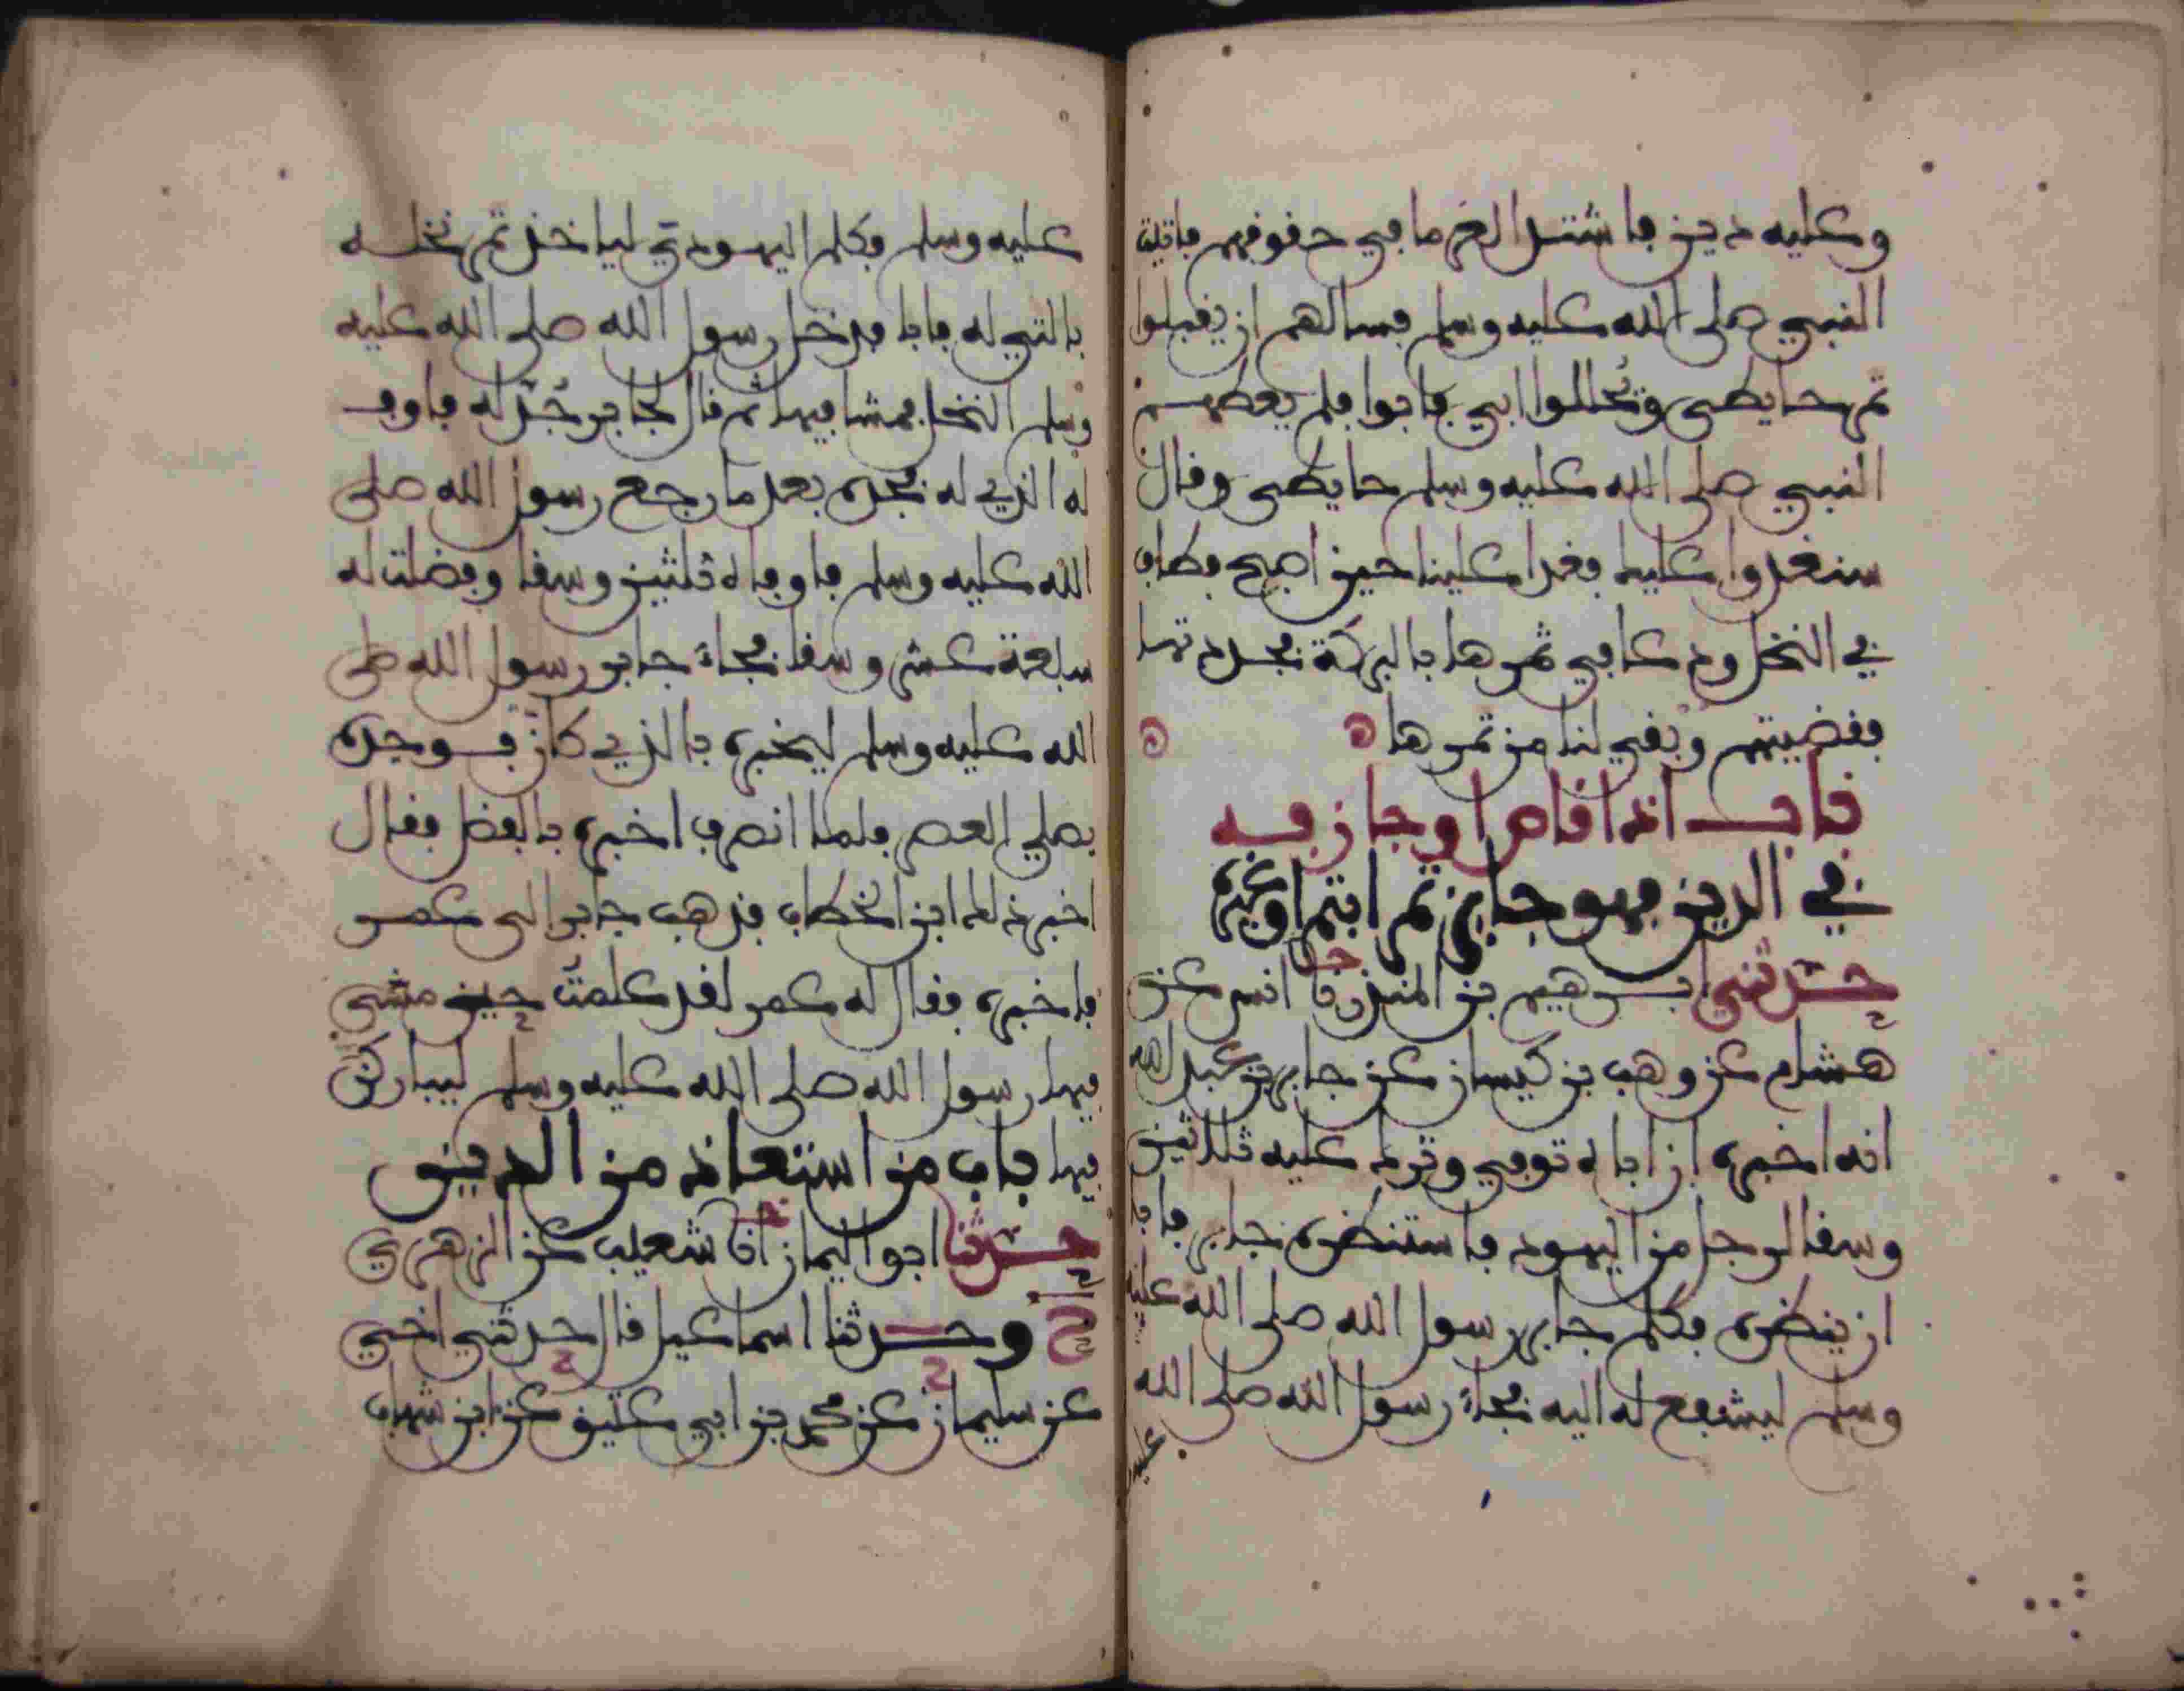 وعليه دين فاشتد الغرما في حقوقهم فاتيت
النبي صلى الله عليه وسلم فسالهم ان يقبلوا
تمر حايطي ويحللوا ابي فابوا فلم يعطهم
النبي صلى الله عليه وسلم حايطي وقال
سنغدوا عليك فغدا علينا حين اصبح فطاف
في النخل ودعا في ثمرها بالبركة فجددتها
فقضيتهم وبقي لنا من تمرها
باب اذا قاص او جازفه
في الدين فهو جايز تمرا بتمر او غيره
حدثني ابرهيم بن المنذر نا انس عن
هشام عن وهب بن كيسان عن جابر بن عبد الله
انه اخبره ان اباه توفي وترك عليه ثلاثين
وسقا لرجل من اليهود فاستنظره جابر فابا
ان ينظره فكلم جابر رسول الله صلى الله عليه
وسلم ليشفع له اليه فجاء رسول الله صلى الله
عليه
عليه وسلم فكلم اليهودي لياخذ تمر نخله
بالتي له فابا فدخل رسول الله صلى الله عليه
وسلم النخل فمشا فيها ثم قال لجابر جد له فاوف
له الذي له فجده بعد ما رجع رسول الله صلى
الله عليه وسلم فاوفاه ثلثين وسقا وفضلت له
سبعة عشر وسقا فجاء جابر رسول الله صلى
الله عليه وسلم ليخبره بالذي كان فوجده
يصلي العصر فلما انصرف اخبره بالفضل فقال
اخبر ذلك ابن الخطاب فذهب جابر الى عمر
فاخبره فقال له عمر لقد علمت حين مشى
فيها رسول الله صلى الله عليه وسلم ليباركن
فيها باب من استعاذ من الدين
حدثنا ابو اليمان انا شعيب عن الزهري
ح وحدثنا اسماعيل قال حدثني اخي
عن سليمان عن محمد بن ابي عتيق عن ابن شهاب